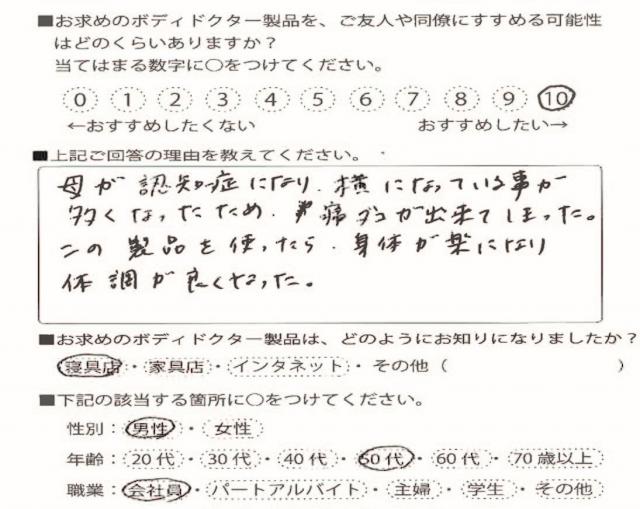 ■お求めのボディドクター製品を、ご友人や同僚にすすめる可能性
はどのくらいありますか？
当てはまる数字に○をつけてください。
0 1 2 3 4 5 6 7 8 9 10
←おすすめしたくない おすすめしたい→
■上記ご回答の理由を教えてください。
母が認知症になり、横になっている事が
多くなったため、痛ダコが出来てしまった。
この製品を使ったら、身体が楽になり
体調が良くなった。
■お求めのボディドクター製品は、どのようにお知りになりましたか？
寝具店・家具店・インタネット・その他（ ）
■下記の該当する箇所に○をつけてください。
性別：男性・女性
年齢：20代・30代・40代・50代・60代・70歳以上
職業：会社員・パートアルバイト・主婦・学生・その他